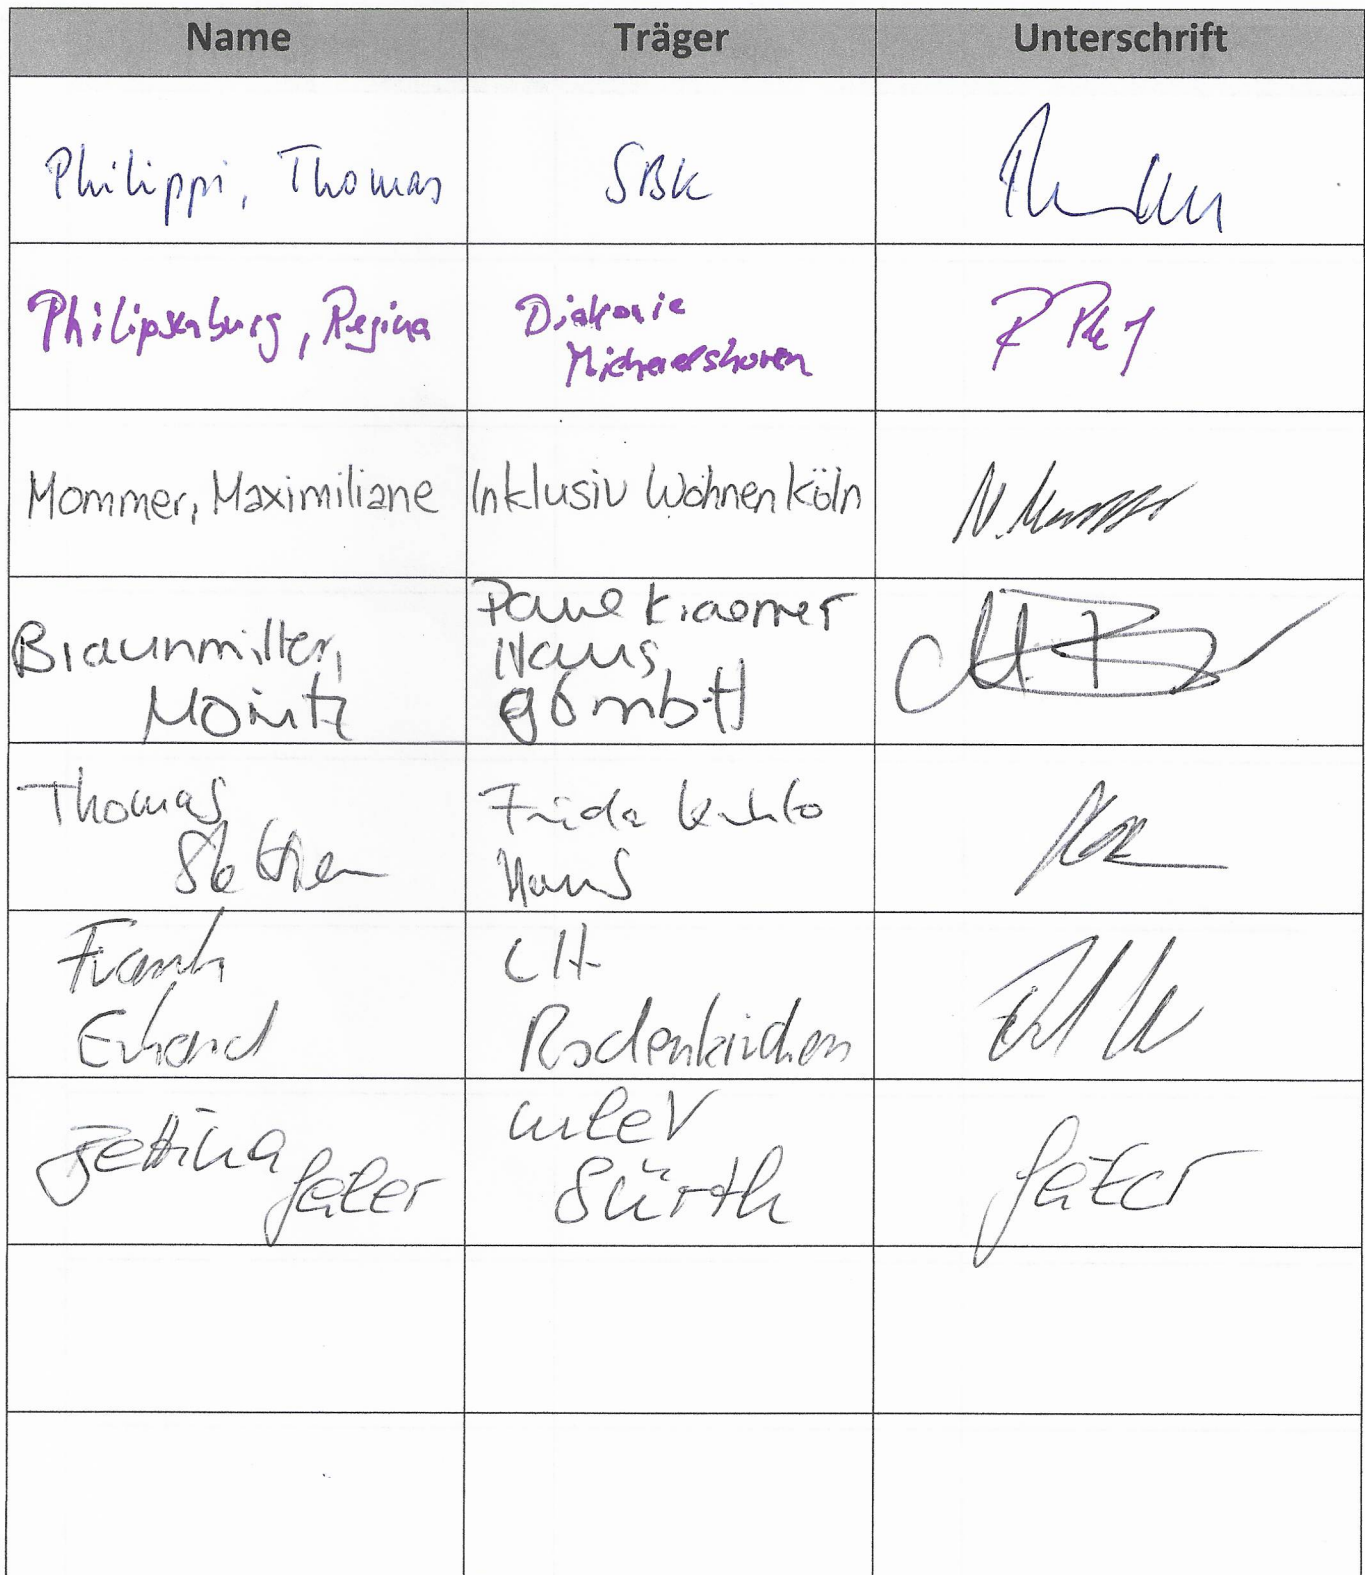 Name Träger Unterschrift
Philippi, Thomas SBK
Philipsenburg, Regina Diakonie
Michaelshoven
Mommer, Maximiliane Inklusiv Wohnen Köln M. Mommer
Braunmiller, Paul Kraemer
Haus
Moritz gGmbH M. B
Thomas Frida Kahlo
Haus
Frank LH
Erhard Rodenkirchen
Bettina mleV
Geller Sürth